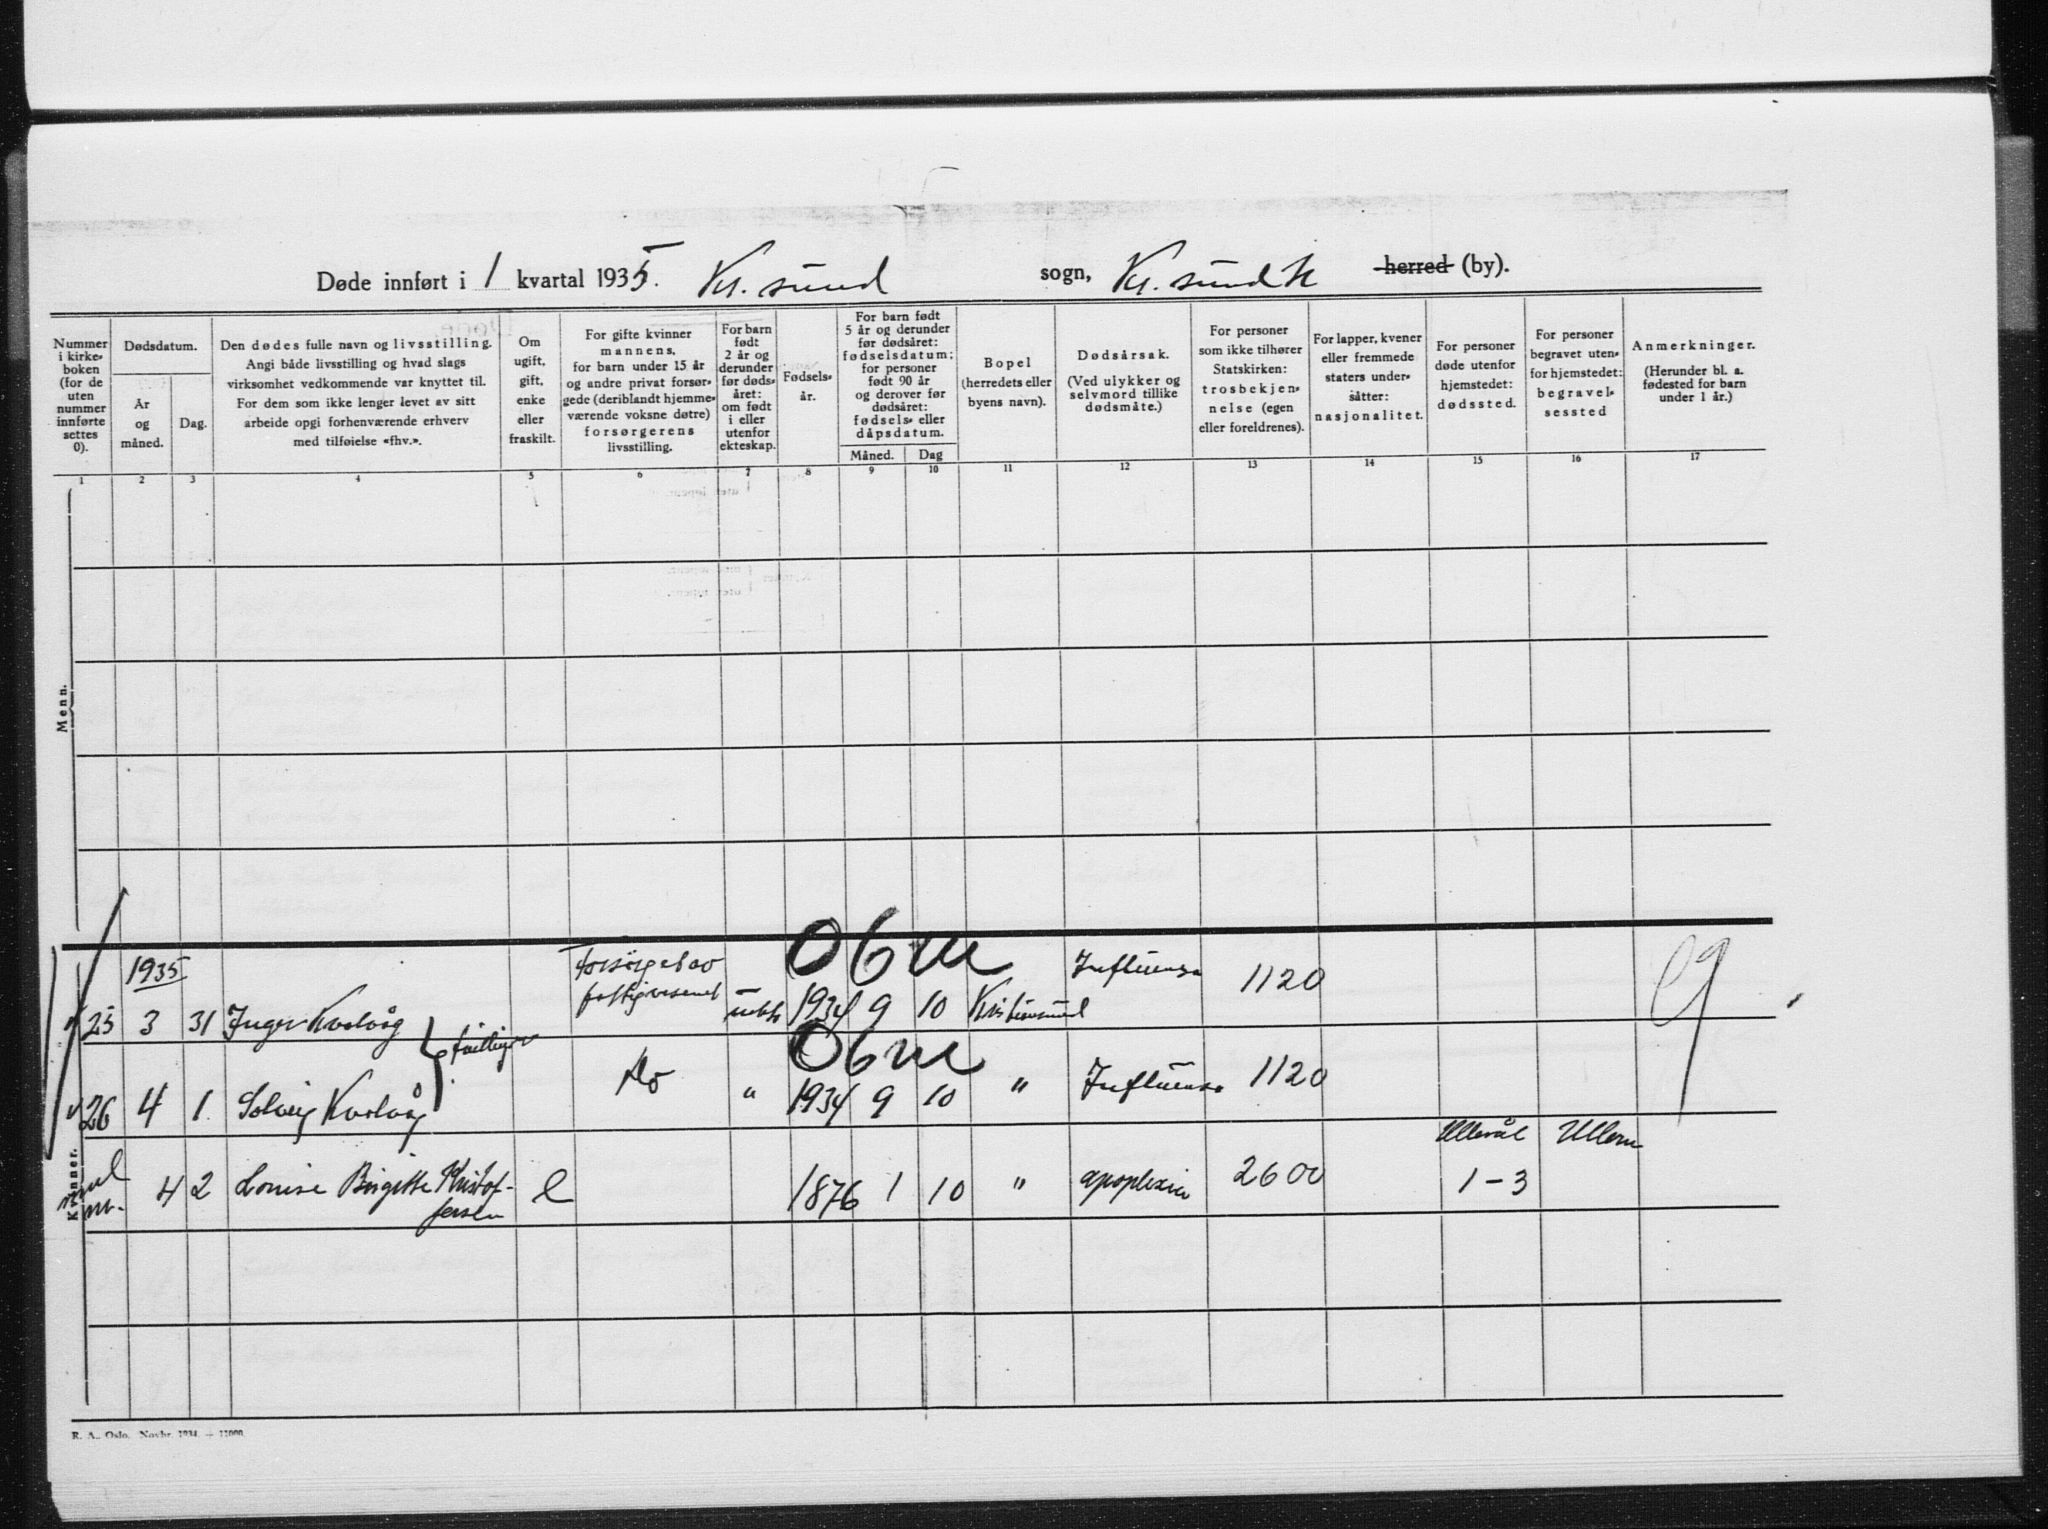 Døde innført i 1 kvartal 1935. Kr. sund sogn, Kr. sund N herred (by).
Nummer i kirke- boken (for de uten nummer innførte settes 0).
Dødsdatum.
År og måned.
Dag.
Den dødes fulle navn og livsstilling. Angi både livsstilling og hvad slags virksomhet vedkommende var knyttet til. For dem som ikke lenger levet av sitt arbeide opgi forhenværende erhverv med tilføielse «fhv.».
Om ugift, gift, enke eller fraskilt.
For gifte kvinner mannens, for barn under 15 år og andre privat forsør- gede (deriblandt hjemme- værende voksne døtre) forsørgerens livsstilling.
For barn født 2 år og derunder før døds- året: om født i eller utenfor ekteskap.
Fødsels- år.
For barn født 5 år og derunder før dødsåret: fødselsdatum; for personer født 90 år og derover før dødsåret: fødsels- eller dåpsdatum.
Måned.
Dag
Bopel (herredets eller byens navn).
Dødsårsak. (Ved ulykker og selvmord tillike dødsmåte.)
For personer som ikke tilhører Statskirken: trosbekjen- nelse (egen eller foreldrenes).
For lapper, kvener eller fremmede staters under- såtter: nasjonalitet.
For personer døde utenfor hjemstedet: dødssted.
For personer begravet uten- for hjemstedet: begravel- sessted
Anmerkninger. (Herunder bl. a. fødested for barn under 1 år.)
1 2 3 4 5 6 7 8 9 10 11 12 13 14 15 16 17
Menn.
Kvinner.
1935 Forsørget av Influensa 1120
25 3 31 Inger Kvalvåg fattigvesenet 1934 9 10 Kristiansund
tvillinger
26 4 1. Solveig Kvalvåg Do " 1934 9 10 " Influensa 1120
Ullevål Ullern
4 2 Louise Birgitte Kristof- e 1876 1 10 " apoplexia 2600 1-3
fersen
R. A., Oslo. Novbr. 1934. ÷ 17000.